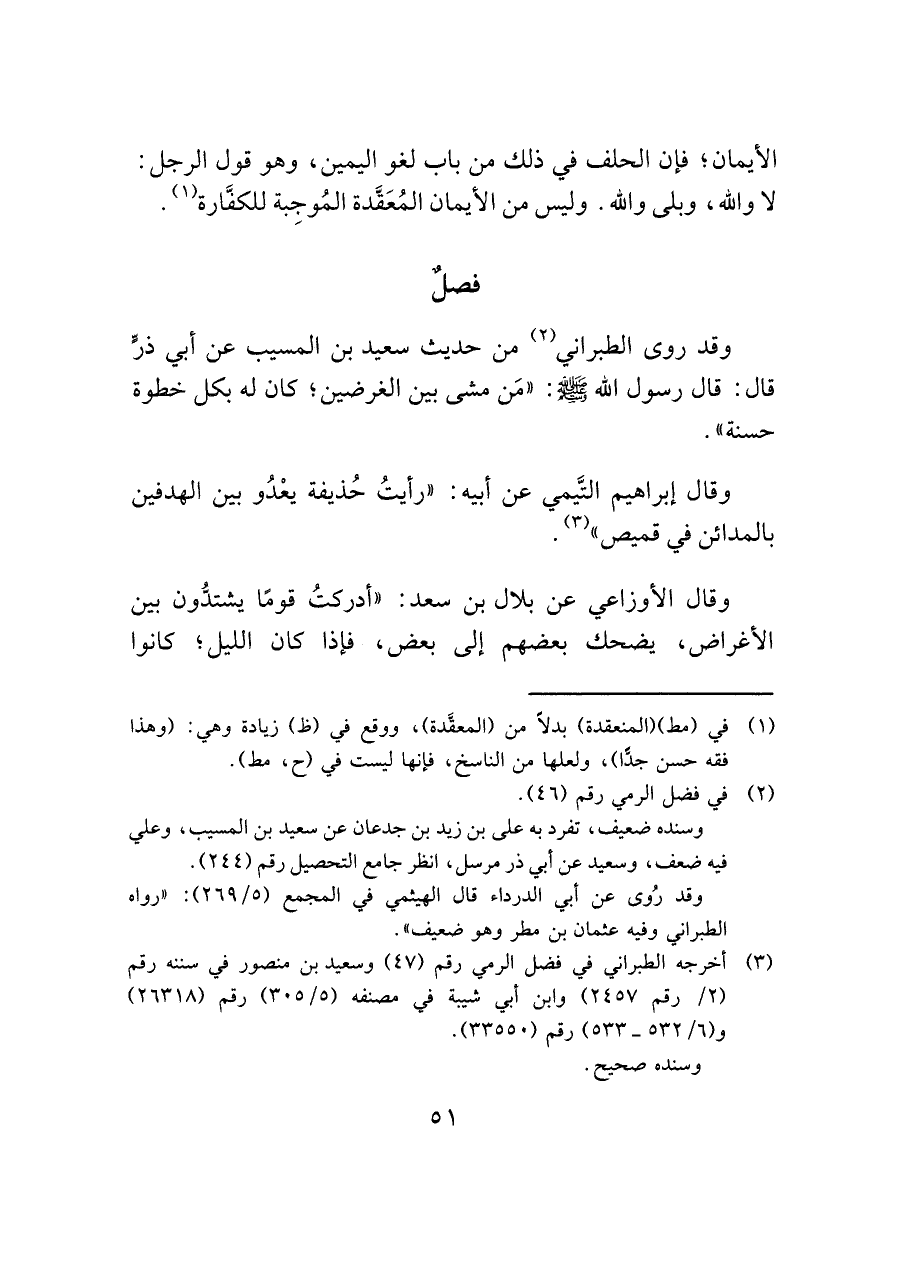 الأيمان؛ فإن الحلف في ذلك من باب لغو اليمين، وهو قول الرجل:
لا والله، وبلى والله. وليس من الأيمان المُعَقَّدة المُوجِبة للكفَّارة(١).
فصلٌ
وقد روى الطبراني(٢) من حديث سعيد بن المسيب عن أبي ذرٍّ
قال: قال رسول الله ﷺ: «مَن مشى بين الغرضين؛ كان له بكل خطوة
حسنة».
وقال إبراهيم التَّيمي عن أبيه: «رأيتُ حُذيفة يعْدُو بين الهدفين
بالمدائن في قميص»(٣).
وقال الأوزاعي عن بلال بن سعد: «أدركتُ قومًا يشتدُّون بين
الأغراض، يضحك بعضهم إلى بعض، فإذا كان الليل؛ كانوا
(١) في (مط)(المنعقدة) بدلاً من (المعقَّدة)، ووقع في (ظ) زيادة وهي: (وهذا
فقه حسن جدًّا)، ولعلها من الناسخ، فإنها ليست في (ح، مط).
(٢) في فضل الرمي رقم (٤٦).
وسنده ضعيف، تفرد به على بن زيد بن جدعان عن سعيد بن المسيب، وعلي
فيه ضعف، وسعيد عن أبي ذر مرسل، انظر جامع التحصيل رقم (٢٤٤).
وقد رُوى عن أبي الدرداء قال الهيثمي في المجمع (٢٦٩/٥): «رواه
الطبراني وفيه عثمان بن مطر وهو ضعيف».
(٣) أخرجه الطبراني في فضل الرمي رقم (٤٧) وسعيد بن منصور في سننه رقم
(٢/ رقم ٢٤٥٧) وابن أبي شيبة في مصنفه (٣٠٥/٥) رقم (٢٦٣١٨)
و(٥٣٢/٦ ـ ٥٣٣) رقم (٣٣٥٥٠).
وسنده صحيح.
٥١